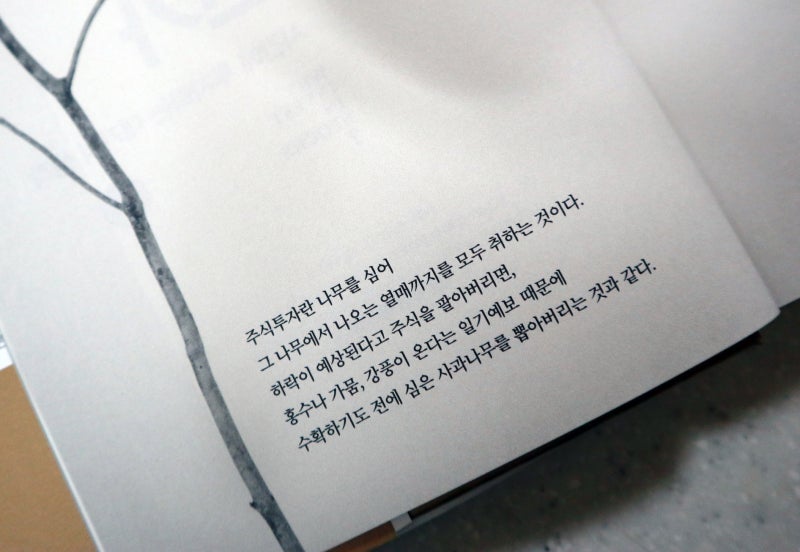 주식투자란 나무를 심어
그 나무에서 나오는 열매까지를 모두 취하는 것이다.
하락이 예상된다고 주식을 팔아버리면,
홍수나 가뭄, 강풍이 온다는 일기예보 때문에
수확하기도 전에 심은 사과나무를 뽑아버리는 것과 같다.